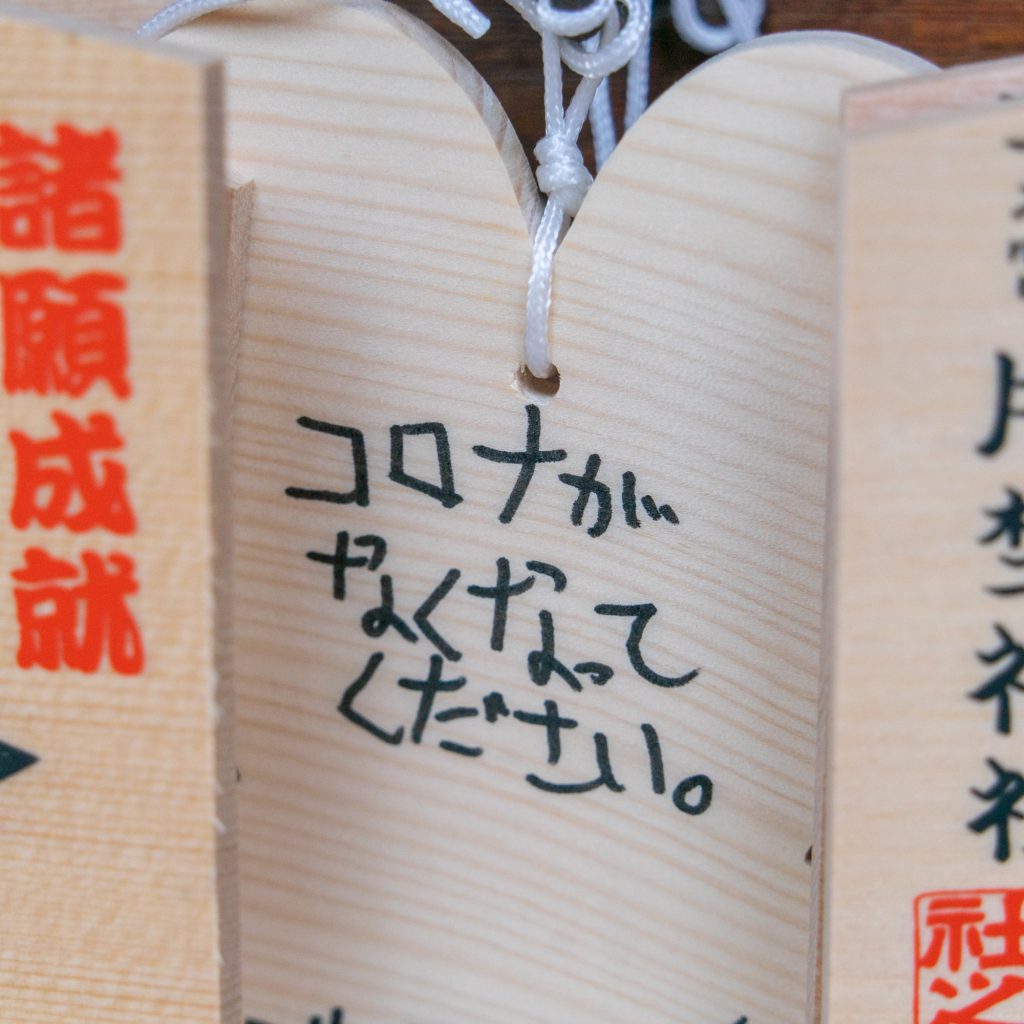 諸願成就
コロナが
なくなって
ください。